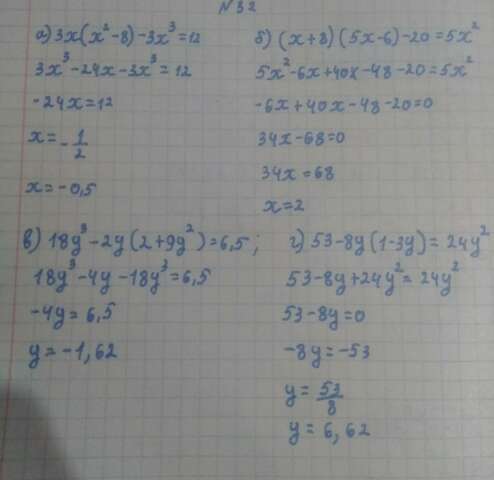 N 32
а) 3x(x²-8)-3x³=12
3x³-24x-3x³=12
-24x=12
x=-1/2
x=-0,5
б) (x+8)(5x-6)-20=5x²
5x²-6x+40x-48-20=5x²
-6x+40x-48-20=0
34x-68=0
34x=68
x=2
в) 18y³-2y(2+9y²)=6,5;
18y³-4y-18y³=6,5
-4y=6,5
y=-1,62
г) 53-8y(1-3y)=24y²
53-8y+24y²=24y²
53-8y=0
-8y=-53
y=53/8
y=6,62